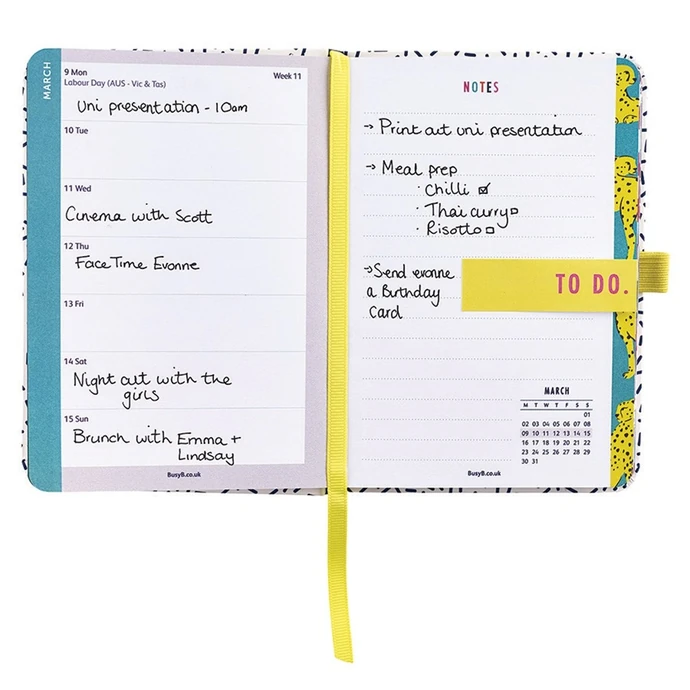 MARCH
9 Mon
Week 11
Labour Day (AUS - Vic & Tas)
Uni presentation - 10am
10 Tue
11 Wed
Cinema with Scott
12 Thu
FaceTime Evonne
13 Fri
14 Sat
Night out with the
girls
15 Sun
Brunch with Emma +
Lindsay
BusyB.co.uk
NOTES
→ Print out uni presentation
→ Meal prep
· Chilli ☑
· Thai curry ☐
· Risotto ☐
→ Send evonne
a Birthday
Card
TO DO.
MARCH
M T W T F S S
01
02 03 04 05 06 07 08
09 10 11 12 13 14 15
16 17 18 19 20 21 22
23 24 25 26 27 28 29
30 31
BusyB.co.uk